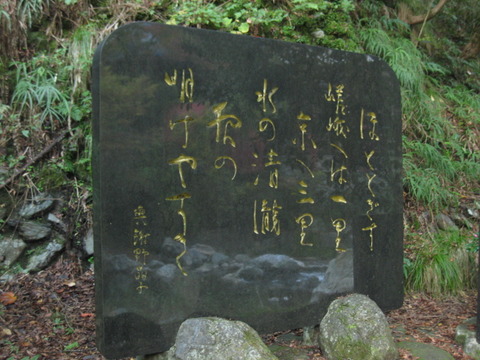 ほととぎす
嵯峨へは一里
京へ三里
水の清瀧
夜の
明けやすき
与謝野晶子